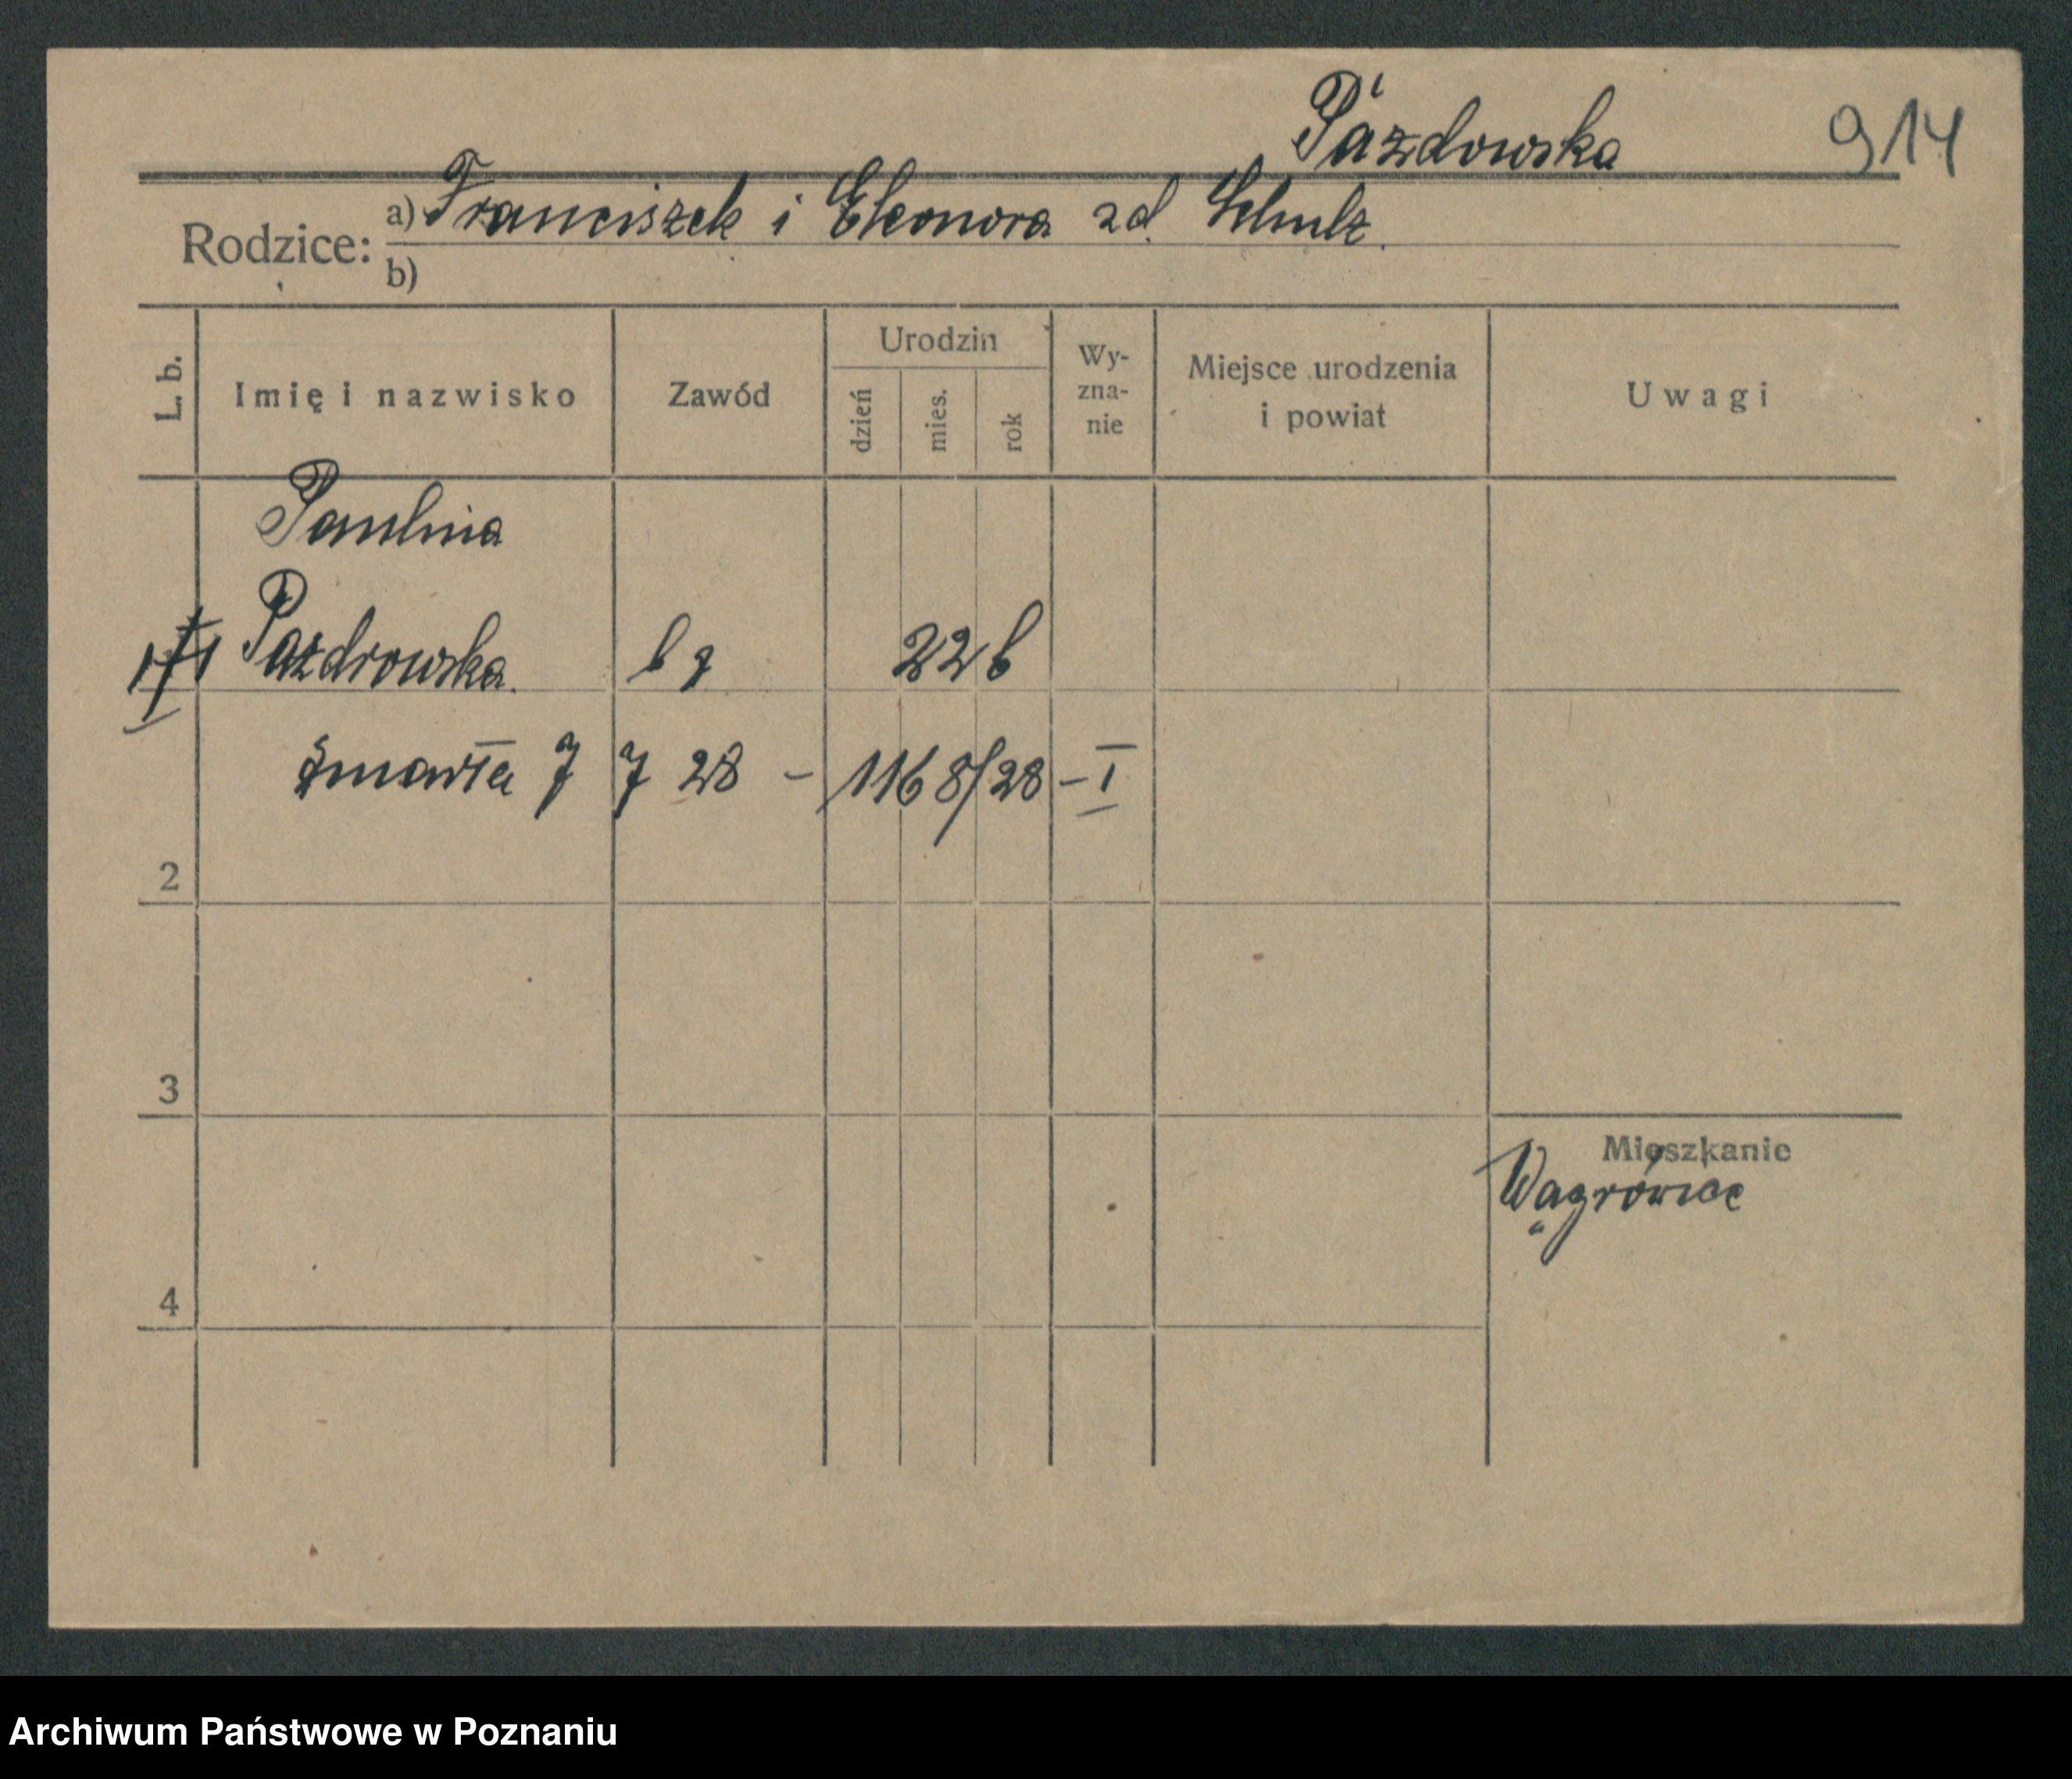 Paździowska 914
Rodzice: a) Franciszek i Eleonora zd. Schulz.
b)
L. b. Imię i nazwisko Zawód Urodzin dzień mies. rok Wyznanie Miejsce urodzenia i powiat Uwagi
Paulina
1 Pazdrowska. b z 22 b
zmarła 7 7 28 – 116 8/28 – I
2
3
Mieszkanie
Wągrowiec
4
Archiwum Państwowe w Poznaniu